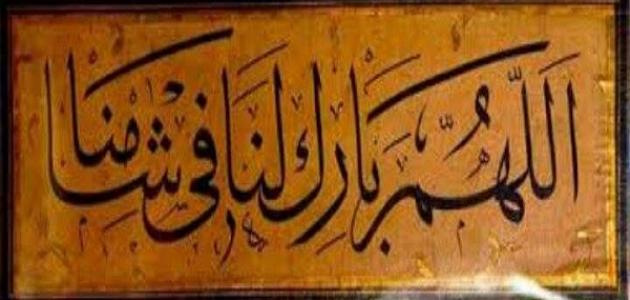 اَللّٰهُمَّ بَارِك لَنَا فِي شَامِنَا